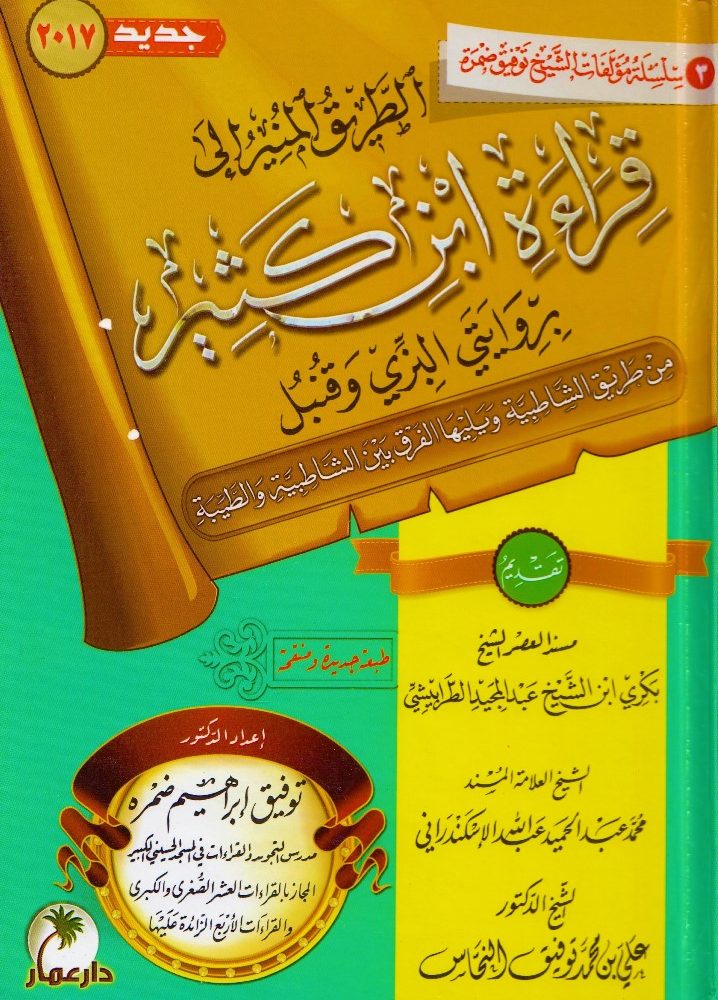 جديد ٢٠١٧
٣ سِلْسِلَةُ مُؤَلَّفَاتِ الشَّيْخِ تَوْفِيق ضَمْرَة
الطَّرِيقُ المُنِيرُ إلى
قِرَاءَةِ ابْنِ كَثِيرٍ
بِرِوَايَتَي البَزِّي وَقُنْبُل
مِنْ طَرِيقِ الشَّاطِبِيَّةِ وَيَلِيهَا الفَرْق بَيْنَ الشَّاطِبِيَّةِ وَالطَّيِّبَةِ
تَقْدِيمُ
مسند العصر الشيخ
بكري ابن الشَّيْخ عبد المجيد الطرابيشي
الشيخ العلامة المُسْنِد
محمَّد عبد الحميد عبد الله الإسكندراني
الشيخ الدكتور
علي بن محمَّد توفيق النحَّاس
طبعة جديدة ومنقحة
إعداد الدكتور
توفيق إبراهيم ضمره
مدرس التجويد والقراءات في المسجد الحسيني الكبير
المجاز بالقراءات العشر الصُّغرى والكبرى
والقراءات الأربع الزَّائدة عَلَيْها
دار عمار